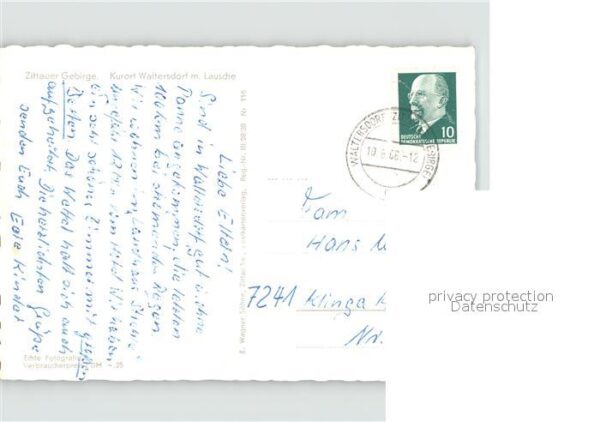 Zittauer Gebirge. Kurort Waltersdorf m. Lausche
Liebe Eltern!
Sind in Waltersdorf gut u. ohne
Panne angekommen, die letzten
100 km bei strömenden Regen
Wir wohnen im Landhaus
12 km vom Wir haben
ein sehr schönes Zimmer mit guten
Betten. Das Wetter hat sich auch
aufgeheitert. Die herzlichsten Grüße
senden Euch Eure Kinder
Echte Fotografie
Verbraucherpreis DM -.25
Reg.-Nr. Nr. 116
DEUTSCHE
DEMOKRATISCHE REPUBLIK
10
WALTERSDORF
GEBIRGE
-12
Fam
Hans
7241 Klinga
Nr.
privacy protection
Datenschutz